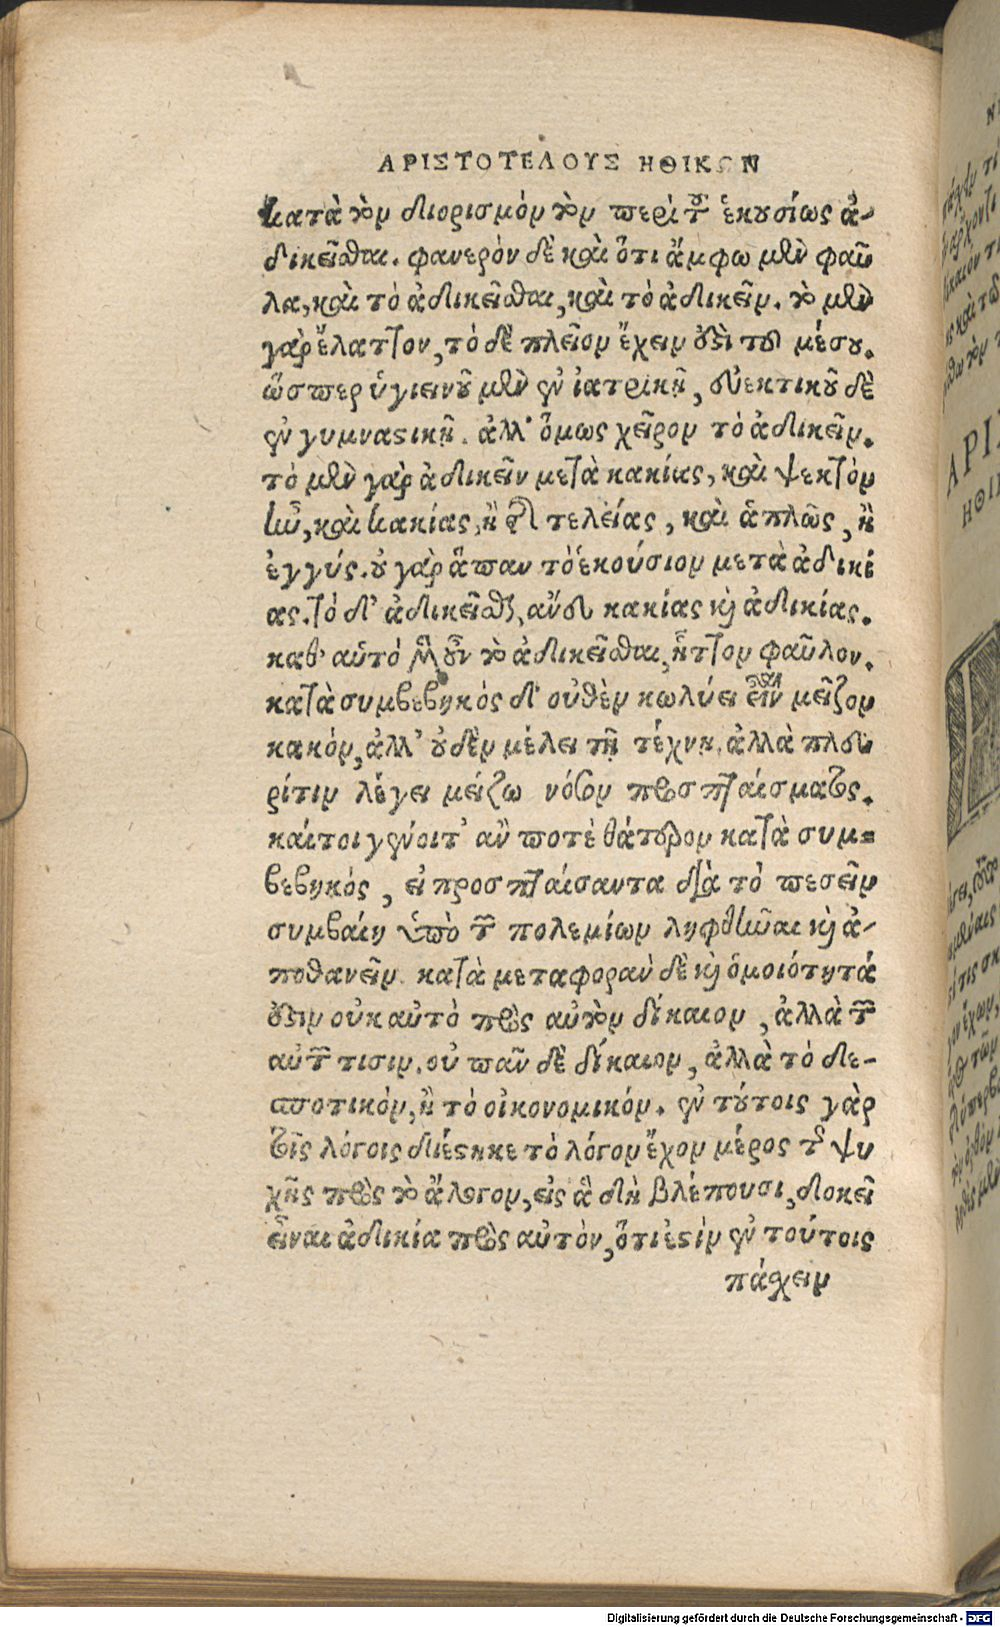 ΑΡΙΣΤΟΤΕΛΟΥΣ ΗΘΙΚΩΝ
κατὰ τὸν διορισμὸν τὸν περὶ τοῦ ἑκουσίως ἀ-
δικεῖσθαι. φανερὸν δὲ καὶ ὅτι ἄμφω μὲν φαῦ
λα, καὶ τὸ ἀδικεῖσθαι, καὶ τὸ ἀδικεῖν. τὸ μὲν
γὰρ ἔλαττον, τὸ δὲ πλεῖον ἔχειν ἐστὶ τοῦ μέσου.
ὥσπερ ὑγιεινοῦ μὲν ἐν ἰατρικῇ, εὐεκτικοῦ δὲ
ἐν γυμναστικῇ. ἀλλ' ὅμως χεῖρον τὸ ἀδικεῖν.
τὸ μὲν γὰρ ἀδικεῖν μετὰ κακίας, καὶ ψεκτὸν
ἦν, καὶ κακίας, ἢ τῆς τελείας, καὶ ἁπλῶς, ἢ
ἐγγύς. οὐ γὰρ ἅπαν τὸ ἑκούσιον μετὰ ἀδικί
ας. τὸ δ' ἀδικεῖσθαι, ἄνευ κακίας καὶ ἀδικίας.
καθ' αὑτὸ μὲν οὖν τὸ ἀδικεῖσθαι, ἧττον φαῦλον.
κατὰ συμβεβηκὸς δ' οὐθὲν κωλύει εἶναι μεῖζον
κακόν, ἀλλ' οὐδὲν μέλει τῇ τέχνῃ. ἀλλὰ πλευ
ρίτιν λέγει μείζω νόσον προσπταίσματος.
καίτοι γένοιτ' ἂν ποτὲ θάτερον κατὰ συμ=
βεβηκός, εἰ προσπταίσαντα διὰ τὸ πεσεῖν
συμβαίη ὑπὸ τῶν πολεμίων ληφθῆναι καὶ ἀ-
ποθανεῖν. κατὰ μεταφορὰν δὲ καὶ ὁμοιότητά
ἐστιν οὐκ αὐτὸ πρὸς αὑτὸν δίκαιον, ἀλλὰ τῶν
αὐτῶν τισιν. οὐ πᾶν δὲ δίκαιον, ἀλλὰ τὸ δε-
σποτικὸν, ἢ τὸ οἰκονομικόν. ἐν τούτοις γὰρ
τοῖς λόγοις διέστηκε τὸ λόγον ἔχον μέρος τῆς ψυ
χῆς πρὸς τὸ ἄλογον, εἰς ἃ δὴ βλέπουσι, δοκεῖ
εἶναι ἀδικία πρὸς αὑτὸν, ὅτι ἐστὶν ἐν τούτοις
πάσχειν
Digitalisierung gefördert durch die Deutsche Forschungsgemeinschaft - DFG